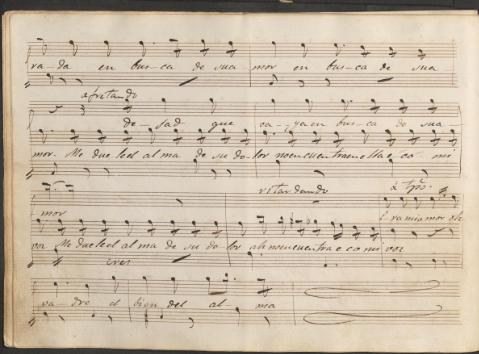 va-da en bus-ca de su a-mor en bus-ca de su a-
afretando
de-sad que va-ya en bus-ca de su a-
mor. Me duele el alma de su do-lor no encuentra en ella e co mi
retardando
à tpo.
mor
voz Me duele el alma de su do-lor ah no encuentra e co mi voz
cres
va-dre el bien del al-ma